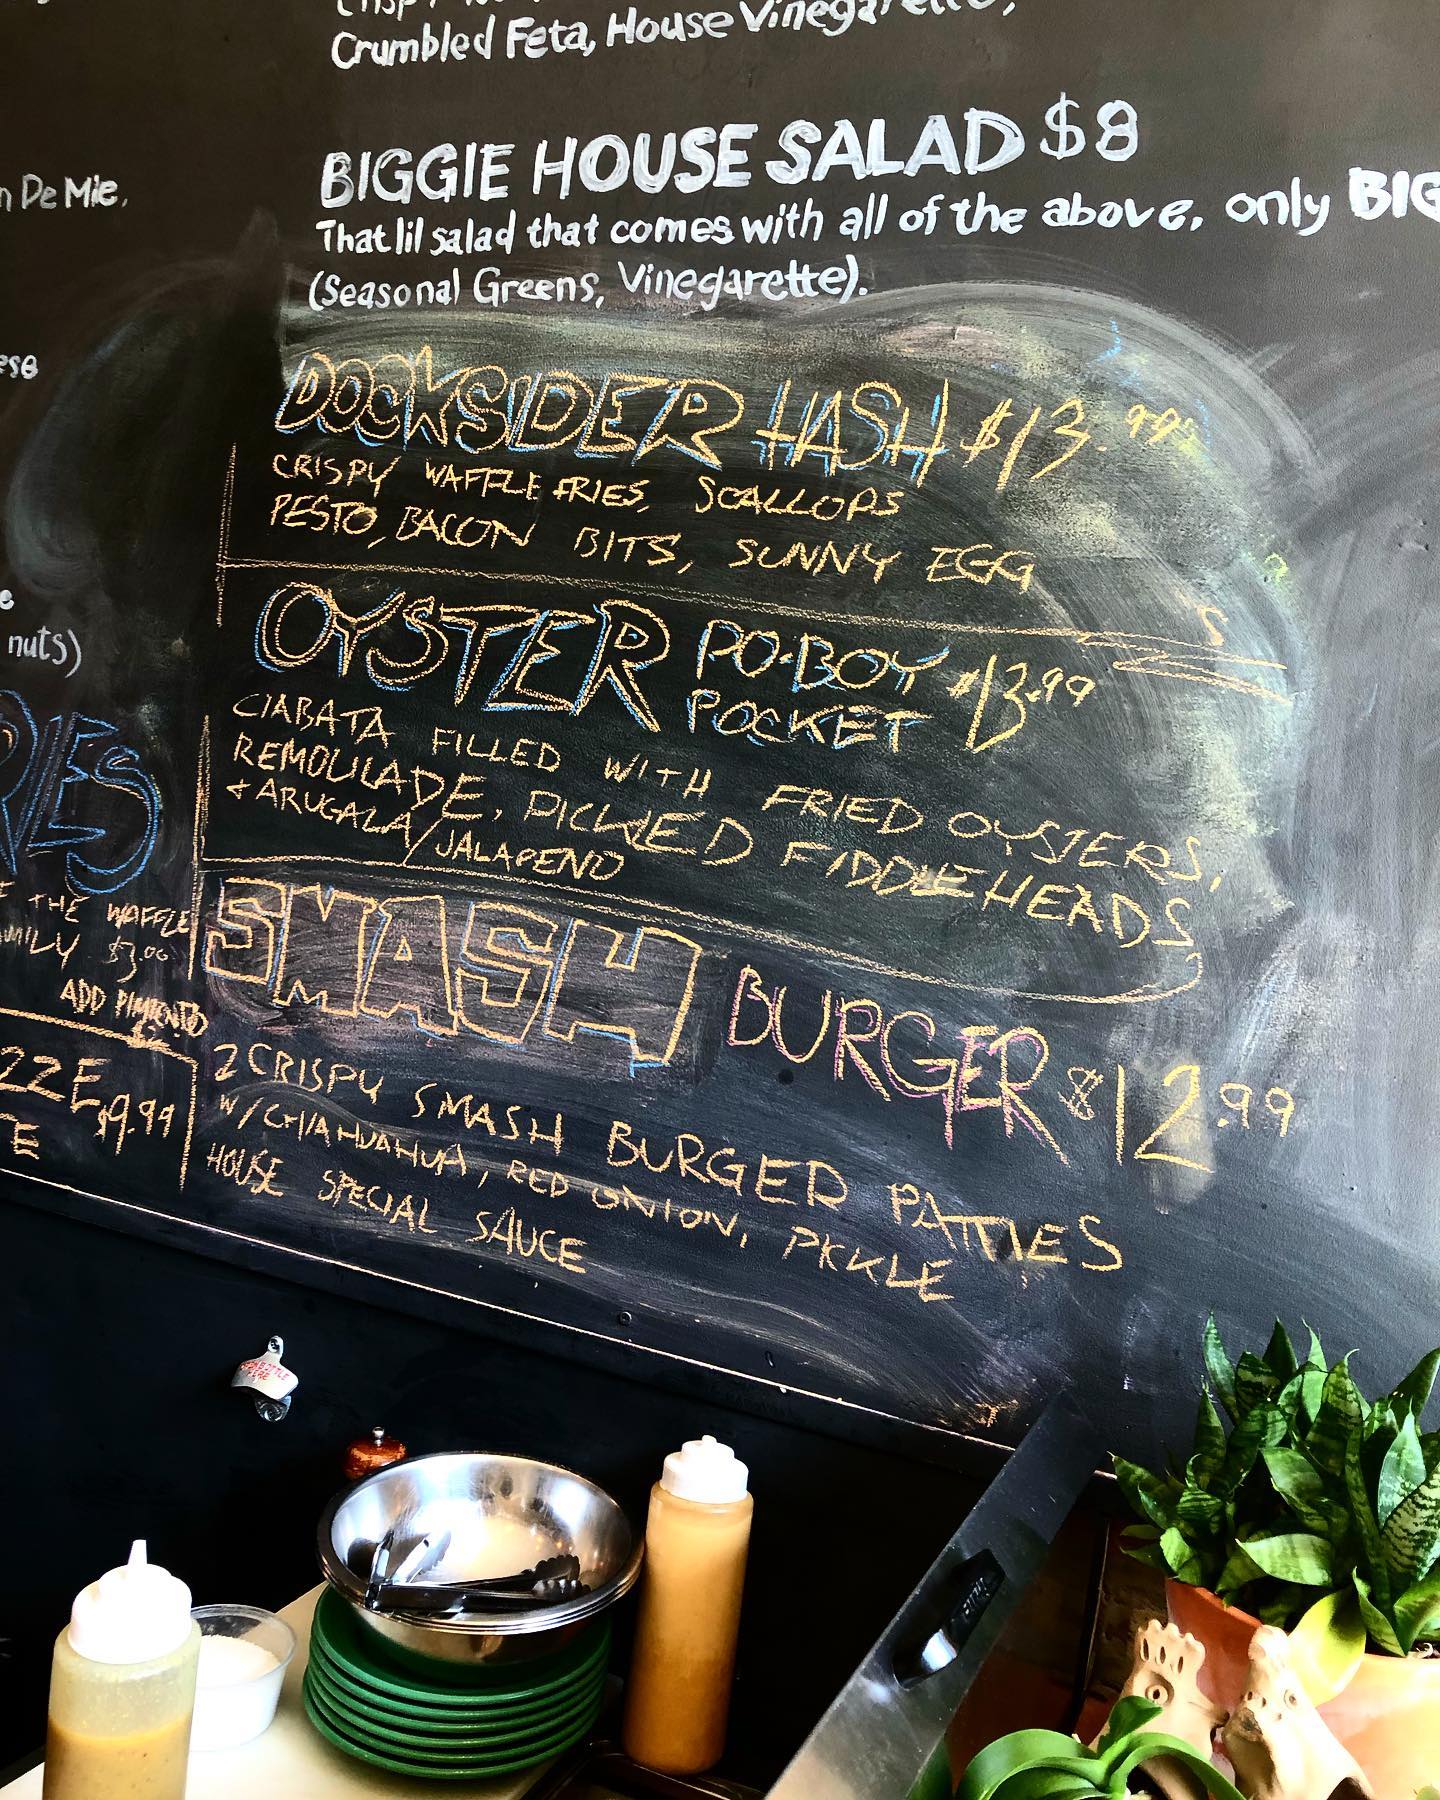 Crumbled Feta, House Vinegarette,
BIGGIE HOUSE SALAD $8
That lil salad that comes with all of the above, only BIG
(Seasonal Greens, Vinegarette).
n De Mie,
ese
e
nuts)
RIES
E THE WAFFLE
AMILY $3.00
ADD PIMIENTO
ZZE
E $9.99
DOCKSIDER HASH $13.99
CRISPY WAFFLE FRIES, SCALLOPS
PESTO, BACON BITS, SUNNY EGG
OYSTER PO-BOY POCKET $13.99
CIABATA FILLED WITH FRIED OYSTERS,
REMOULADE, PICKLED FIDDLEHEADS
+ ARUGALA/JALAPENO
SMASH BURGER $12.99
2 CRISPY SMASH BURGER PATTIES
W/CHIAHUAHUA, RED ONION, PICKLE
HOUSE SPECIAL SAUCE